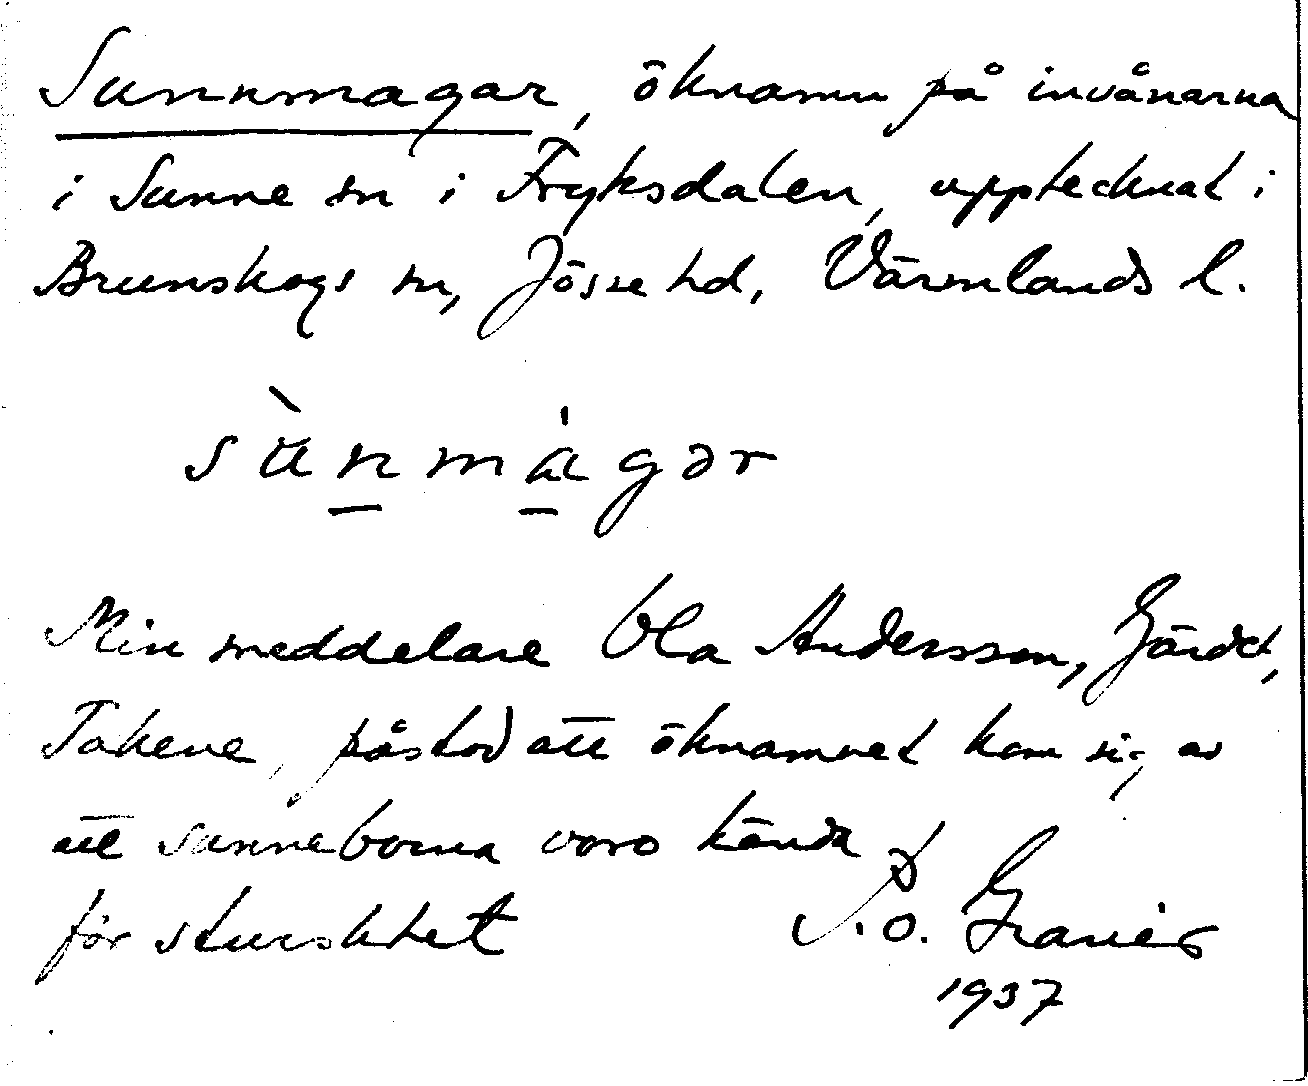 Sunnmagar, öknamn på invånarna
i Sunne sn i Fryksdalen, upptecknat i
Brunskogs sn, Jösse hd, Värmlands l.
sùnmágər
Min meddelare Ola Andersson, Gärdet,
Takene, påstod att öknamnet kom sig av
att sunneborna voro kända
för sturskhet
P.O. Graner
1937